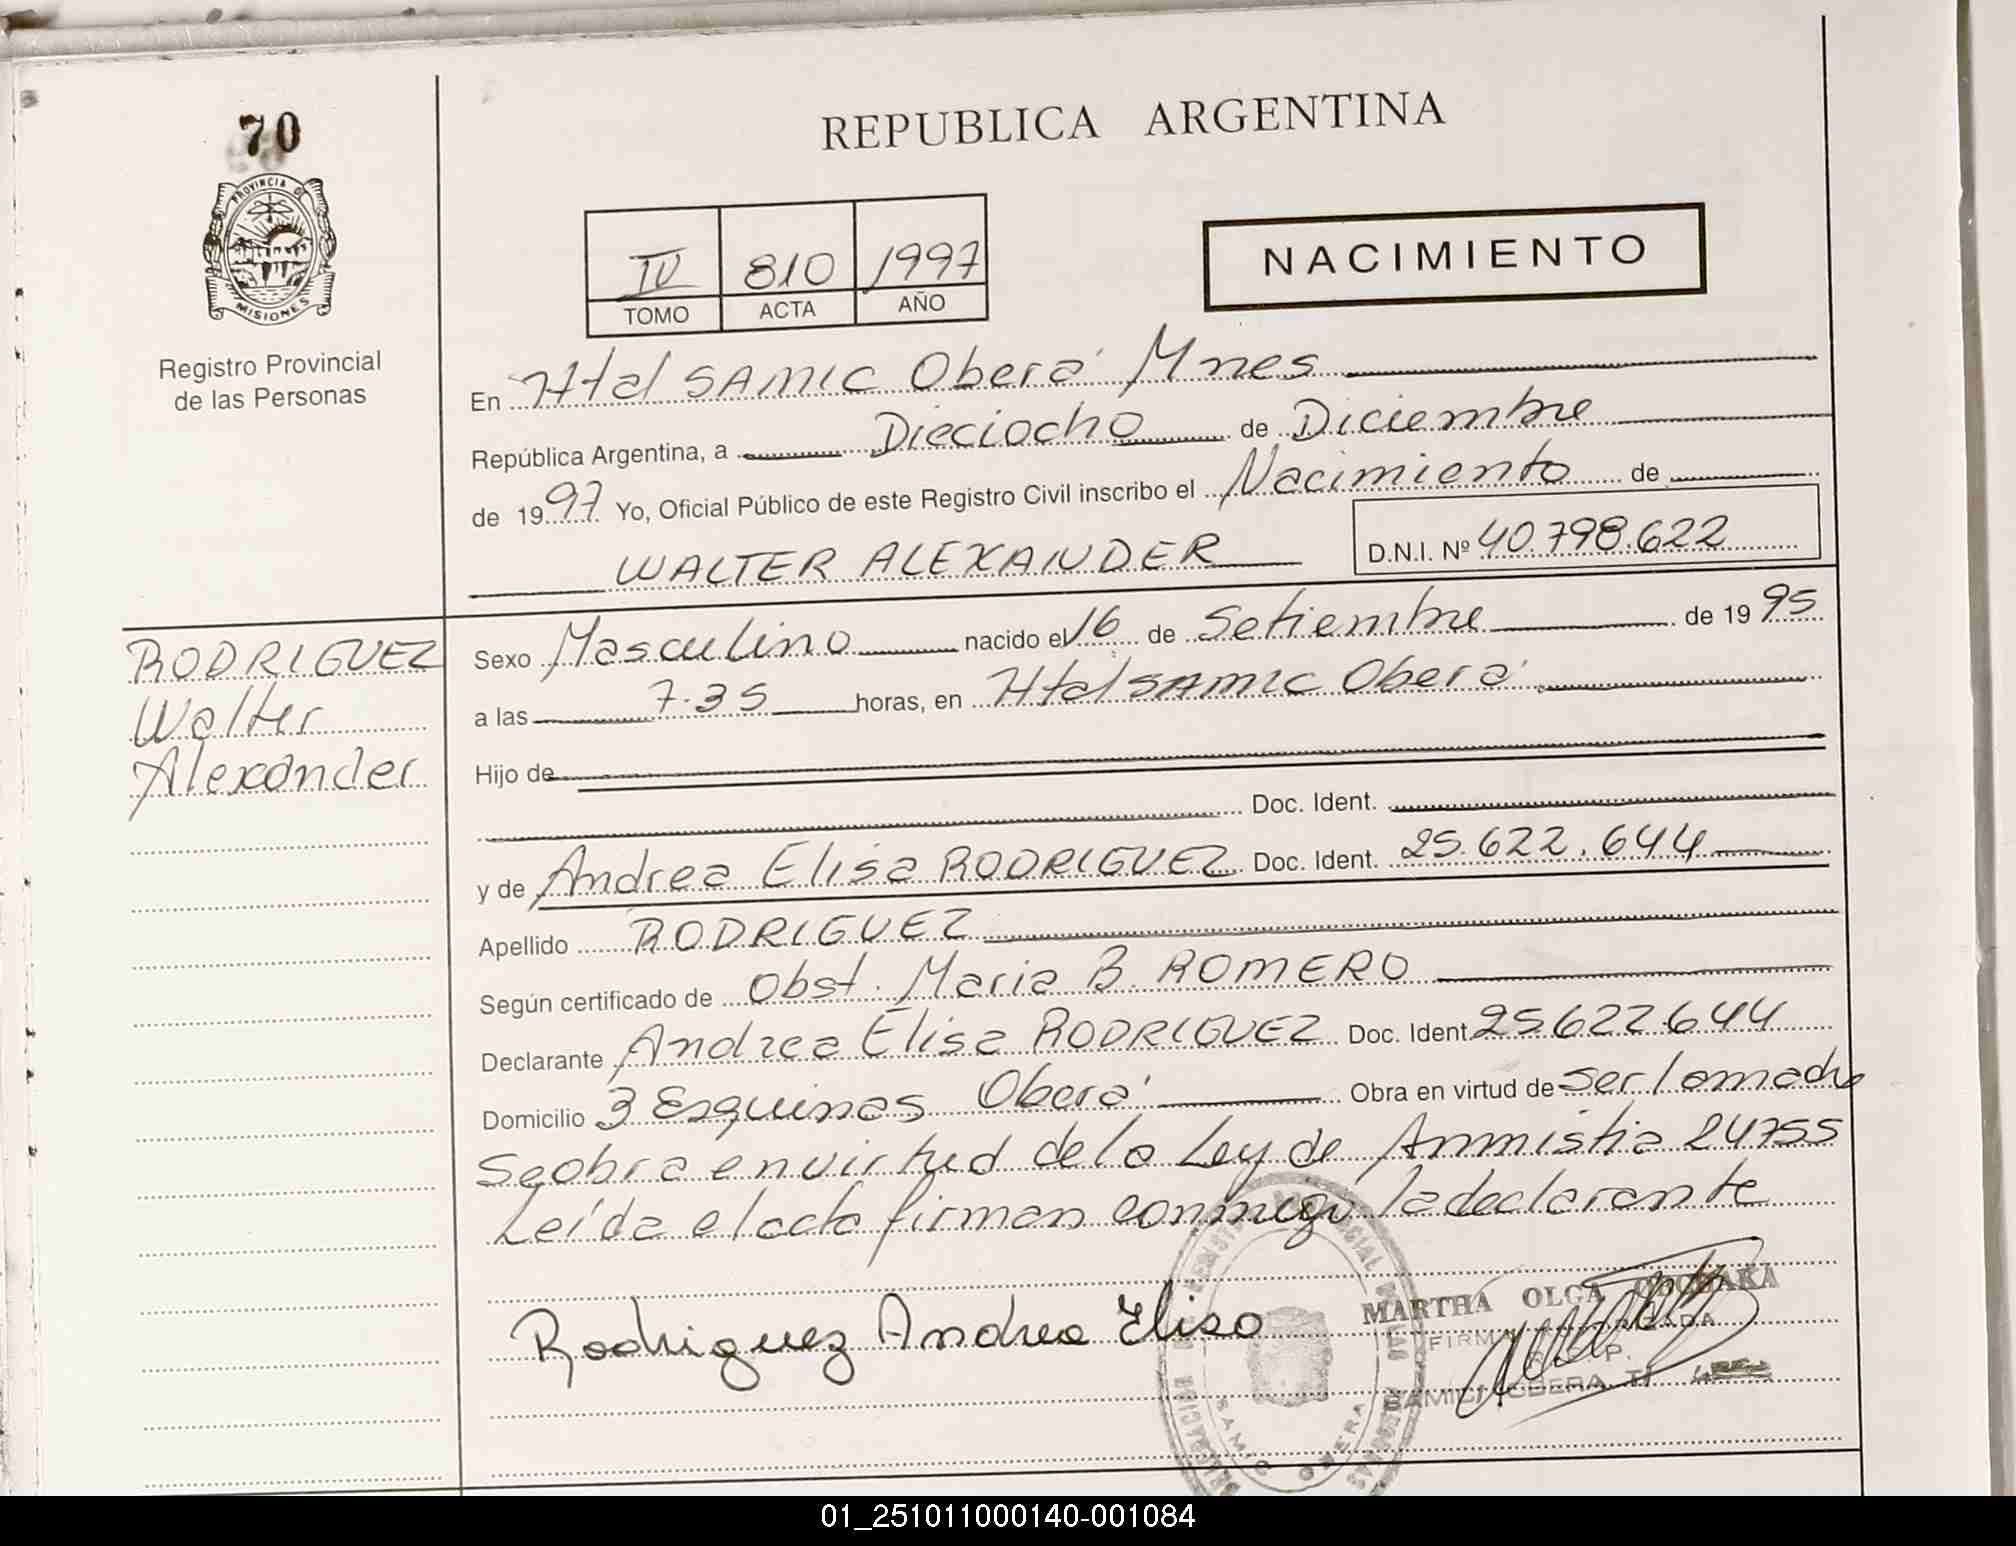 70
REPUBLICA ARGENTINA
PROVINCIA D
MISIONES
Registro Provincial
de las Personas
IV 810 1997
TOMO ACTA AÑO
NACIMIENTO
En Htal SAMIC Oberá Mnes
República Argentina, a Dieciocho de Diciembre
de 1997 Yo, Oficial Público de este Registro Civil inscribo el Nacimiento de
WALTER ALEXANDER D.N.I. Nº 40.798.622
RODRIGUEZ
Walter
Alexander
Sexo Masculino nacido el 16 de Setiembre de 1995
a las 7.35 horas, en Htal SAMIC Oberá
Hijo de
Doc. Ident.
y de Andrea Elisa RODRIGUEZ Doc. Ident. 25.622.644
Apellido RODRIGUEZ
Según certificado de Obst. Maria B. ROMERO
Declarante Andrea Elisa RODRIGUEZ Doc. Ident 25.622.644
Domicilio 3 Esquinas Oberá Obra en virtud de ser la madre
Se obra en virtud de la Ley de Anmistia 24755
Leída el acta firman conmigo la declarante
Rodriguez Andrea Elisa
MARTHA OLGA
FIRMA AUTORIZADA
SAMIC OBERA
SAMIC OBERA
01_251011000140-001084